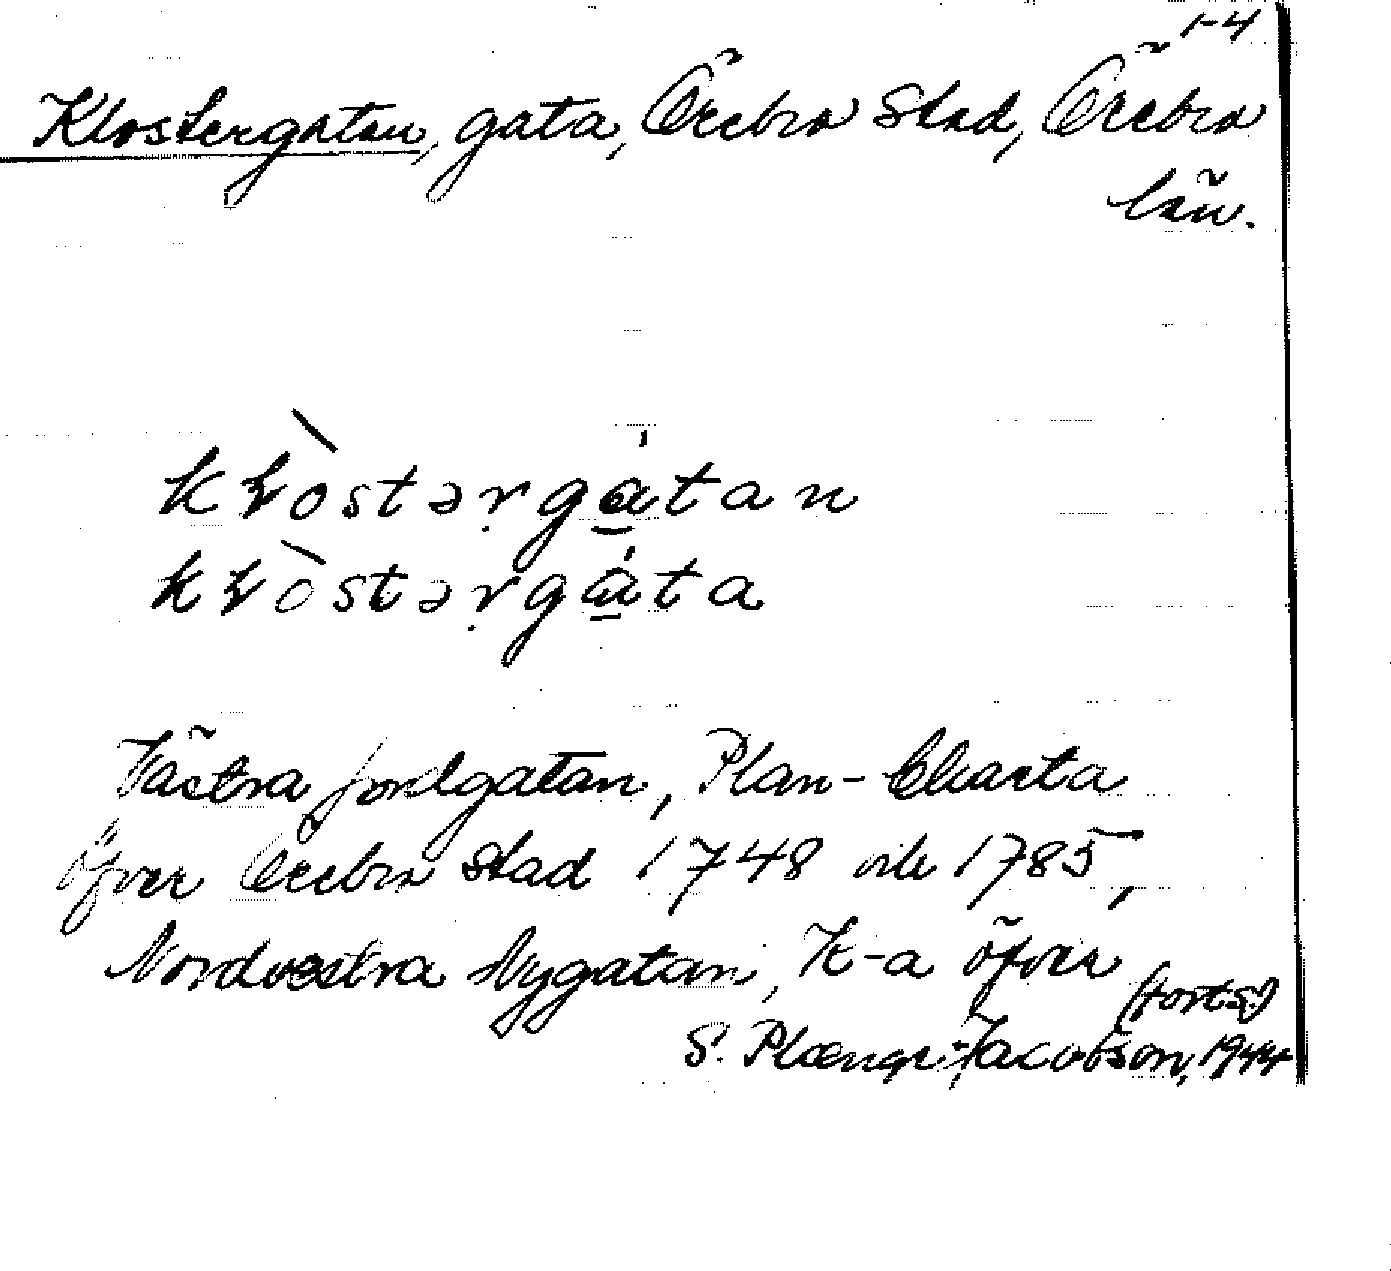 1-4
Klostergatan, gata, Örebro stad, Örebro
län.
kłòstərg̣átan
kłòstərg̣áta
Västra jordgatan, Plan-Charta
öfver Örebro stad 1748 och 1785,
Nordvestra Nygatan, K-a öfver
(forts.)
S. Plænge-Jacobson, 1944